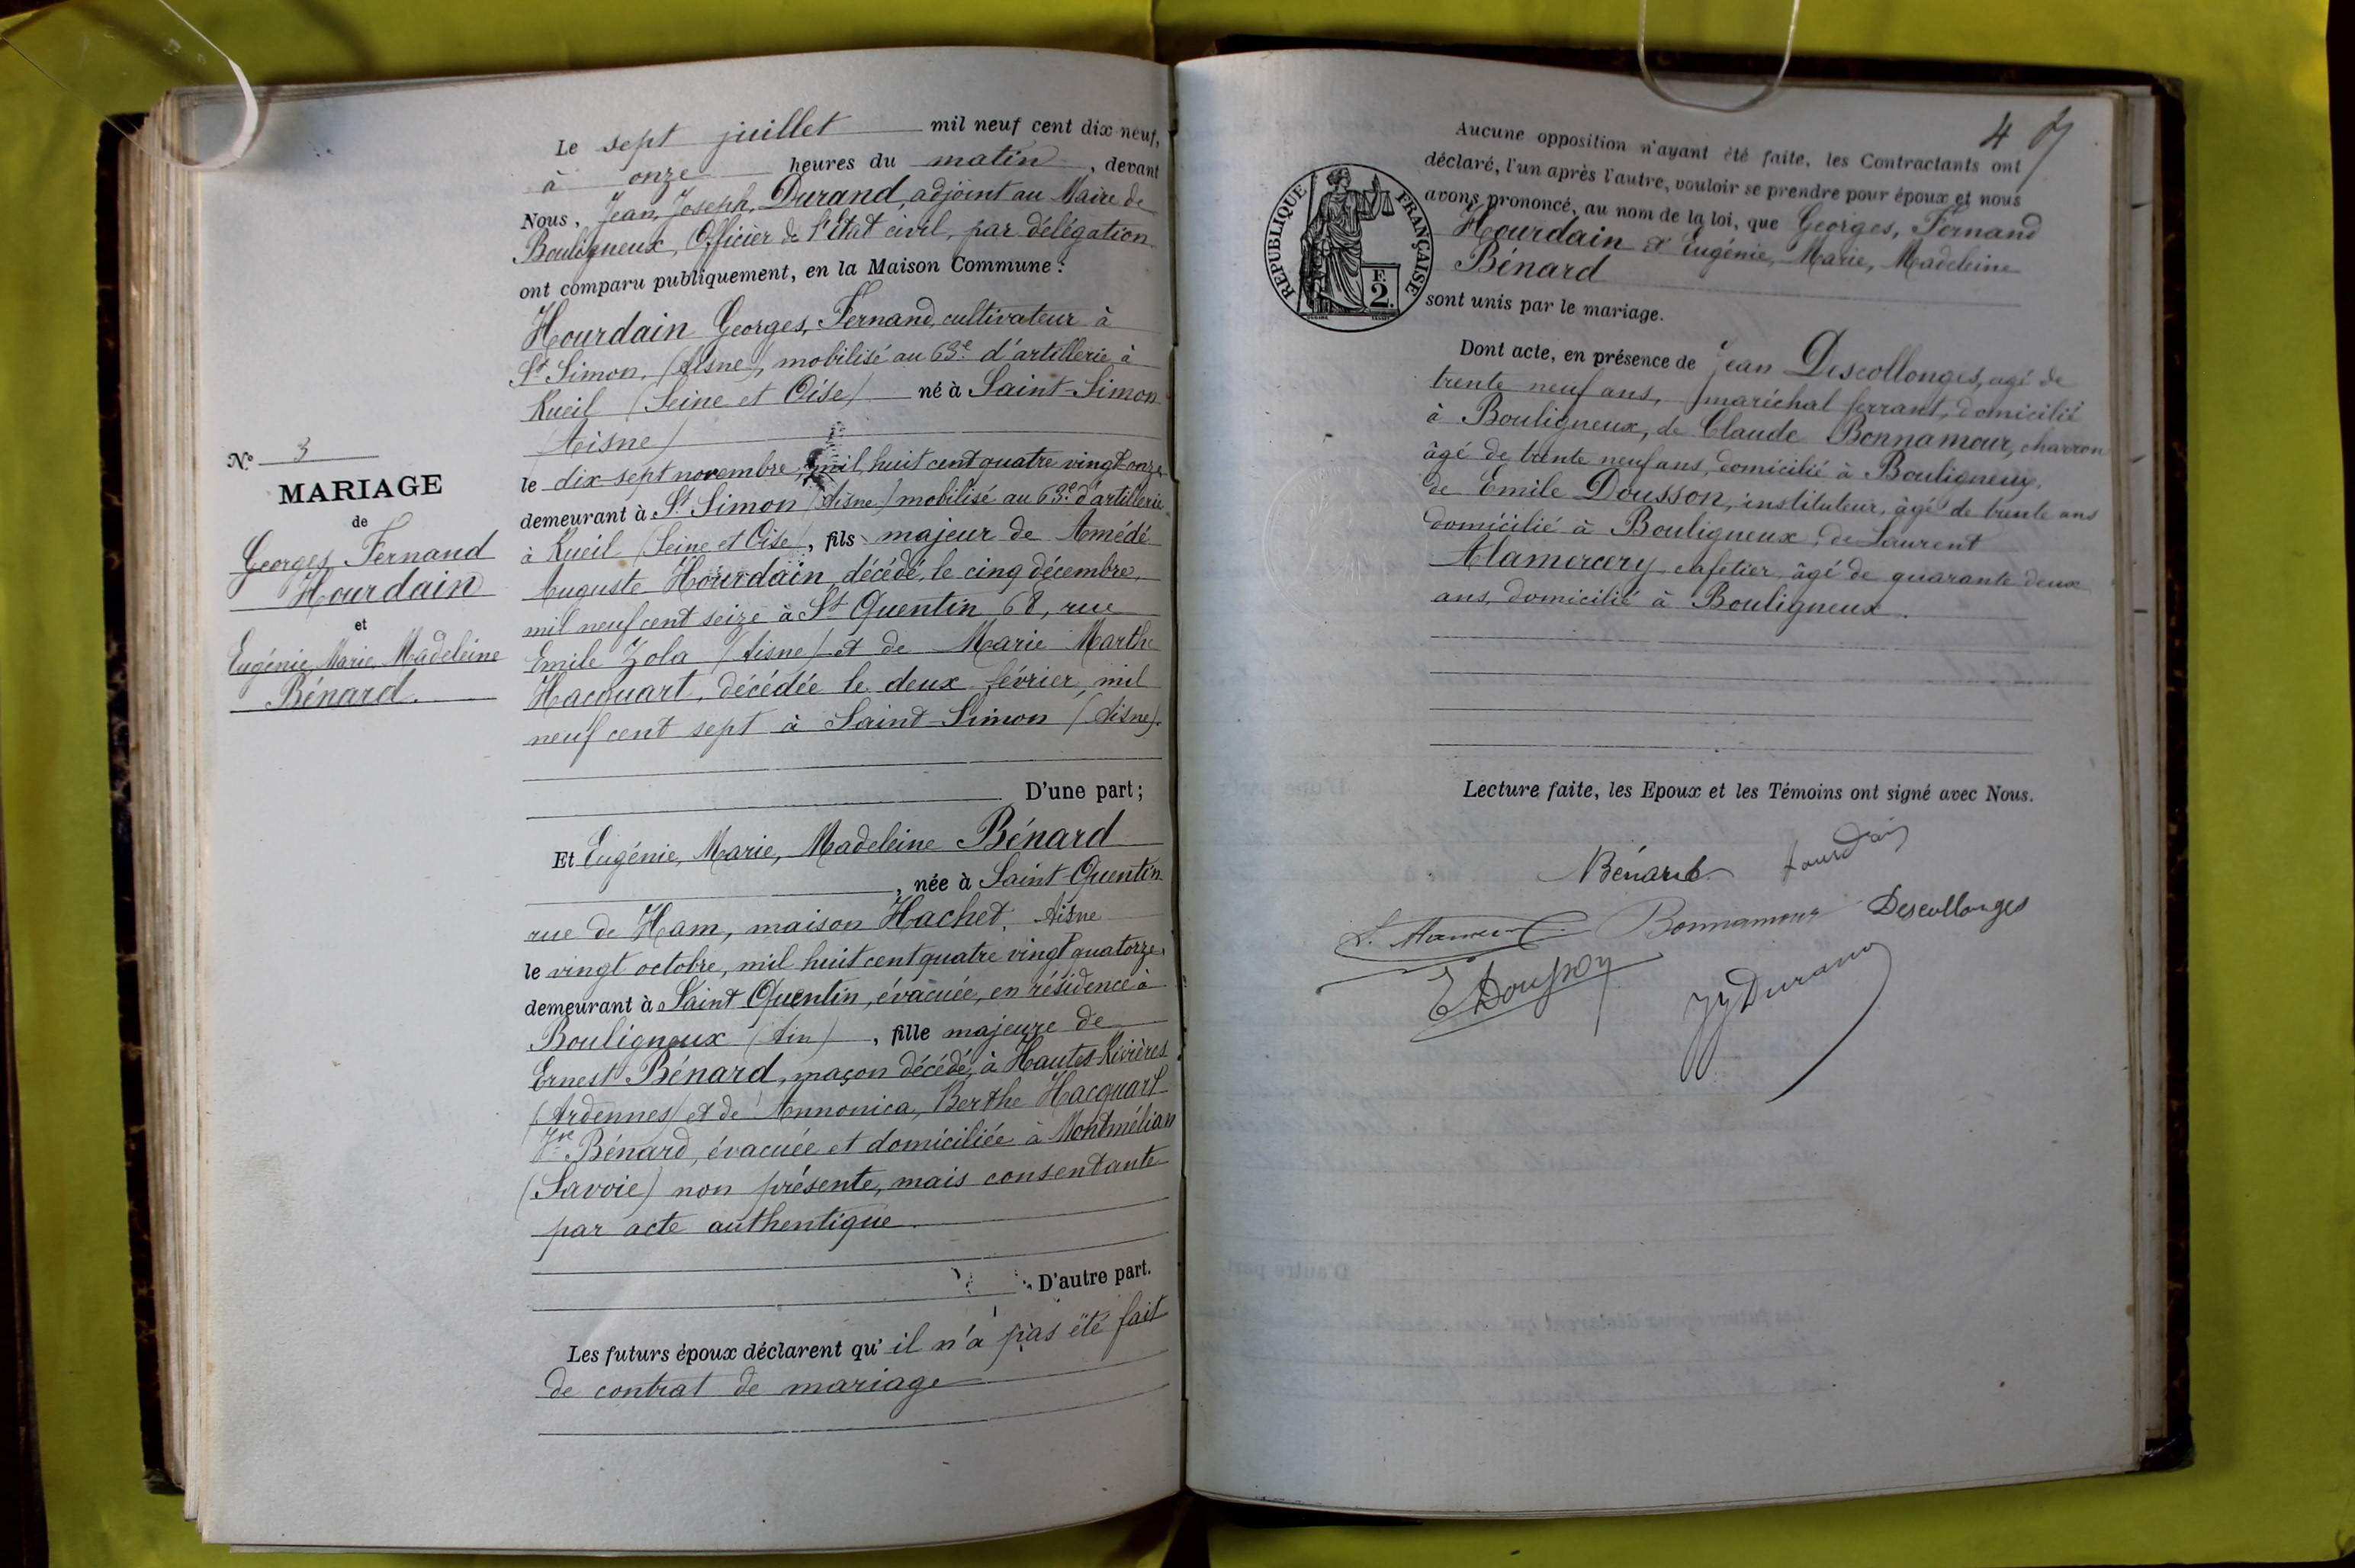 Le sept juillet mil neuf cent dix-neuf,
à onze heures du matin, devant
Nous, Jean, Joseph, Durand, adjoint au Maire de
Bouligneux, Officier de l'état civil, par délégation
ont comparu publiquement, en la Maison Commune :
Hourdain Georges, Fernand, cultivateur à
St Simon, (Aisne), mobilisé au 63e d'artillerie à
Rueil (Seine et Oise) né à Saint-Simon
(Aisne)
le dix-sept novembre, mil huit cent quatre vingt-onze
demeurant à St Simon (Aisne) mobilisé au 63e d'artillerie
à Rueil (Seine et Oise), fils majeur de Amédé
Auguste Hourdain, décédé, le cinq décembre,
mil neuf cent seize à St Quentin 68, rue
Emile Zola (Aisne) et de Marie Marthe
Hacquart, décédée le deux février, mil
neuf cent sept à Saint-Simon (Aisne).
D'une part ;
Et Eugénie, Marie, Madeleine Bénard
, née à Saint-Quentin
rue de Ham, maison Hachet, Aisne
le vingt octobre, mil huit cent quatre vingt quatorze,
demeurant à Saint Quentin, évacuée, en résidence à
Bouligneux (Ain), fille majeure de
Ernest Bénard, maçon décédé, à Hautes-Rivières
(Ardennes) et de Annonica, Berthe Hacquart
Vve Bénard, évacuée et domiciliée à Montmélian
(Savoie) non présente, mais consentante
par acte authentique.
D'autre part.
Les futurs époux déclarent qu' il n'a pas été fait
de contrat de mariage
N° 3
MARIAGE
de
Georges, Fernand
Hourdain
et
Eugénie, Marie, Madeleine
Bénard.
4
Aucune opposition n'ayant été faite, les Contractants ont
déclaré, l'un après l'autre, vouloir se prendre pour époux et nous
avons prononcé, au nom de la loi, que Georges, Fernand
Hourdain et Eugénie, Marie, Madeleine
Bénard
sont unis par le mariage.
RÉPUBLIQUE FRANÇAISE
E
2.
Dont acte, en présence de Jean Descollonges, agé de
trente neuf ans, maréchal ferrant, domicilié
à Bouligneux, de Claude Bonnamour, charron
âgé de trente neuf ans, domicilié à Bouligneux,
de Emile Dousson, instituteur, âgé de trente ans
domicilié à Bouligneux, de Laurent
Alamercery cafetier, âgé de quarante deux
ans, domicilié à Bouligneux.
Lecture faite, les Epoux et les Témoins ont signé avec Nous.
Bénard Hourdain
Bonnamour Descollonges
E Dousson JJ Durand